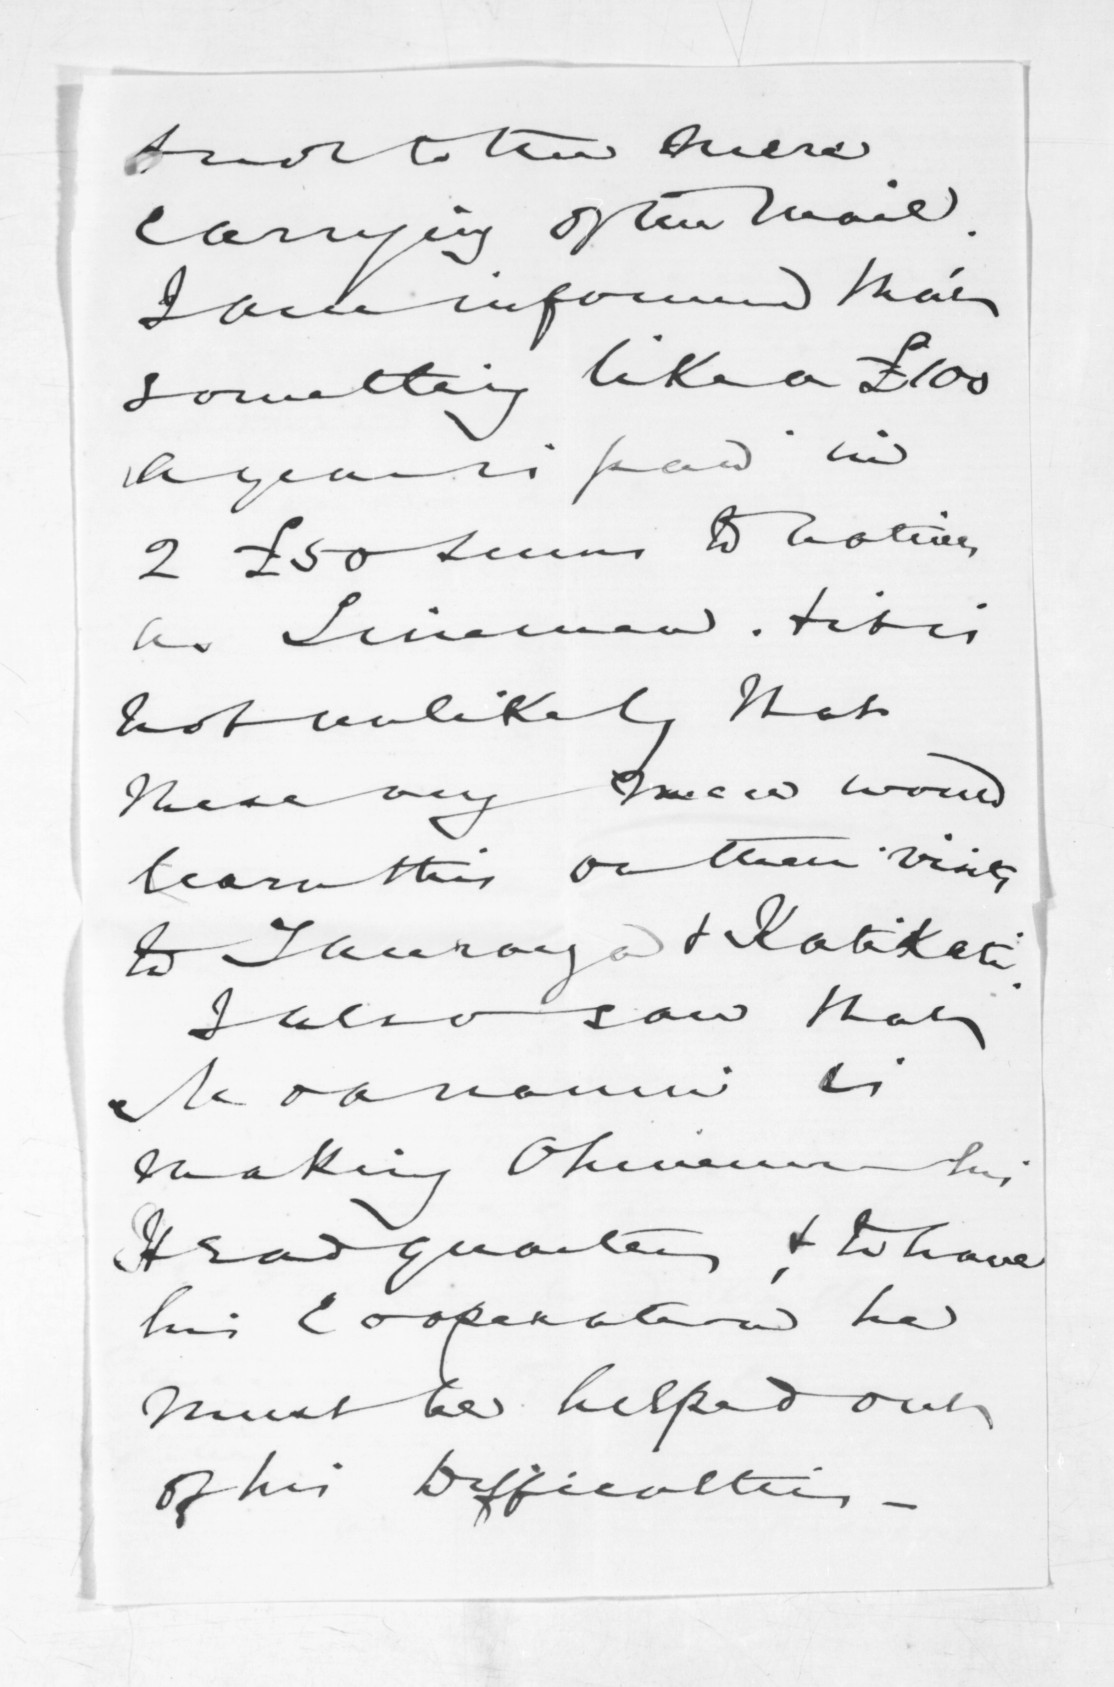 & not to the mere
carrying of the Mail.
I am informed that
something like a £100
a year is paid in
2 £50 sums to natives
as Linemen. & it is
not unlikely that
these very men would
learn this on their visits
to Tauranga & Katikati.
I also saw that
is
making Ohinemuri his
Head quarters, & to have
his Cooperation he
must be helped out
of his Difficulties –